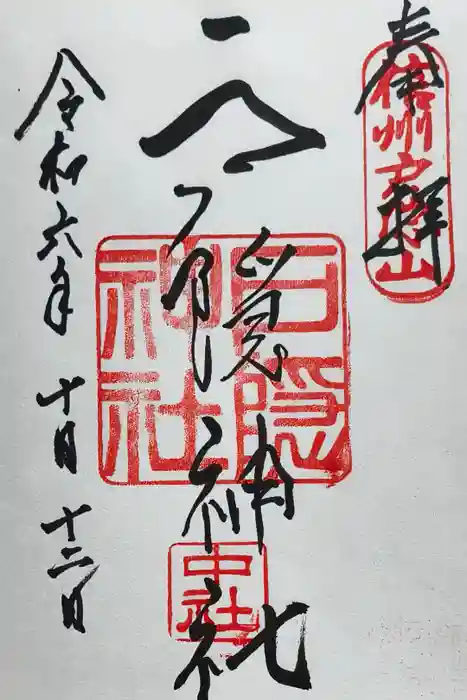 奉拝
信州戸隠山
戸隠神社
戸隠神社
中社
令和六年 十月 十二日